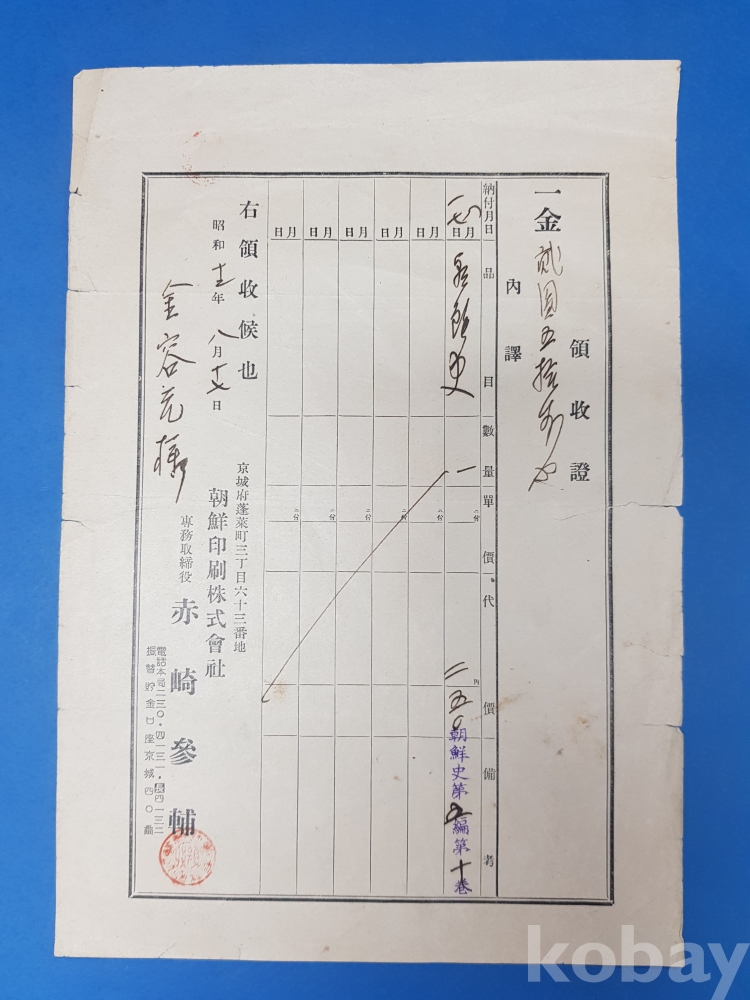 領收證
一金貳圓五拾錢也
內譯
納付月日 品目 數量 單價 代價 備考
八月 日 朝鮮史 一 二五〇 朝鮮史第五編第十卷
月 日
月 日
月 日
月 日
月 日
右領收候也
昭和十一年八月十七日
京城府蓬萊町三丁目六十三番地
朝鮮印刷株式會社
專務取締役 赤崎參輔
電話本局二三〇・四一三一・長四一三二
振替貯金口座京城四〇番
金容元樣
kobay